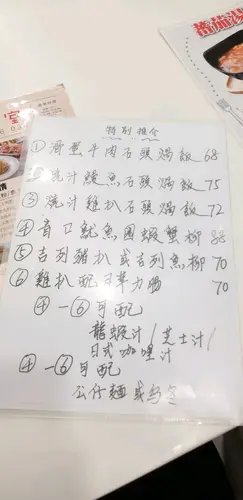 蕃茄湯
特別推介
① 滑蛋牛肉石頭焗飯 68
② 燒汁鰻魚石頭焗飯 75
③ 燒汁雞扒石頭焗飯 72
④ 青口魷魚圈蝦蟹柳 88
⑤ 吉列豬扒或吉列魚柳 70
⑥ 雞扒配芝士力腸 70
④-⑥可配
龍蝦汁/芝士汁/
日式咖哩汁
④-⑥可配
公仔麵或烏冬